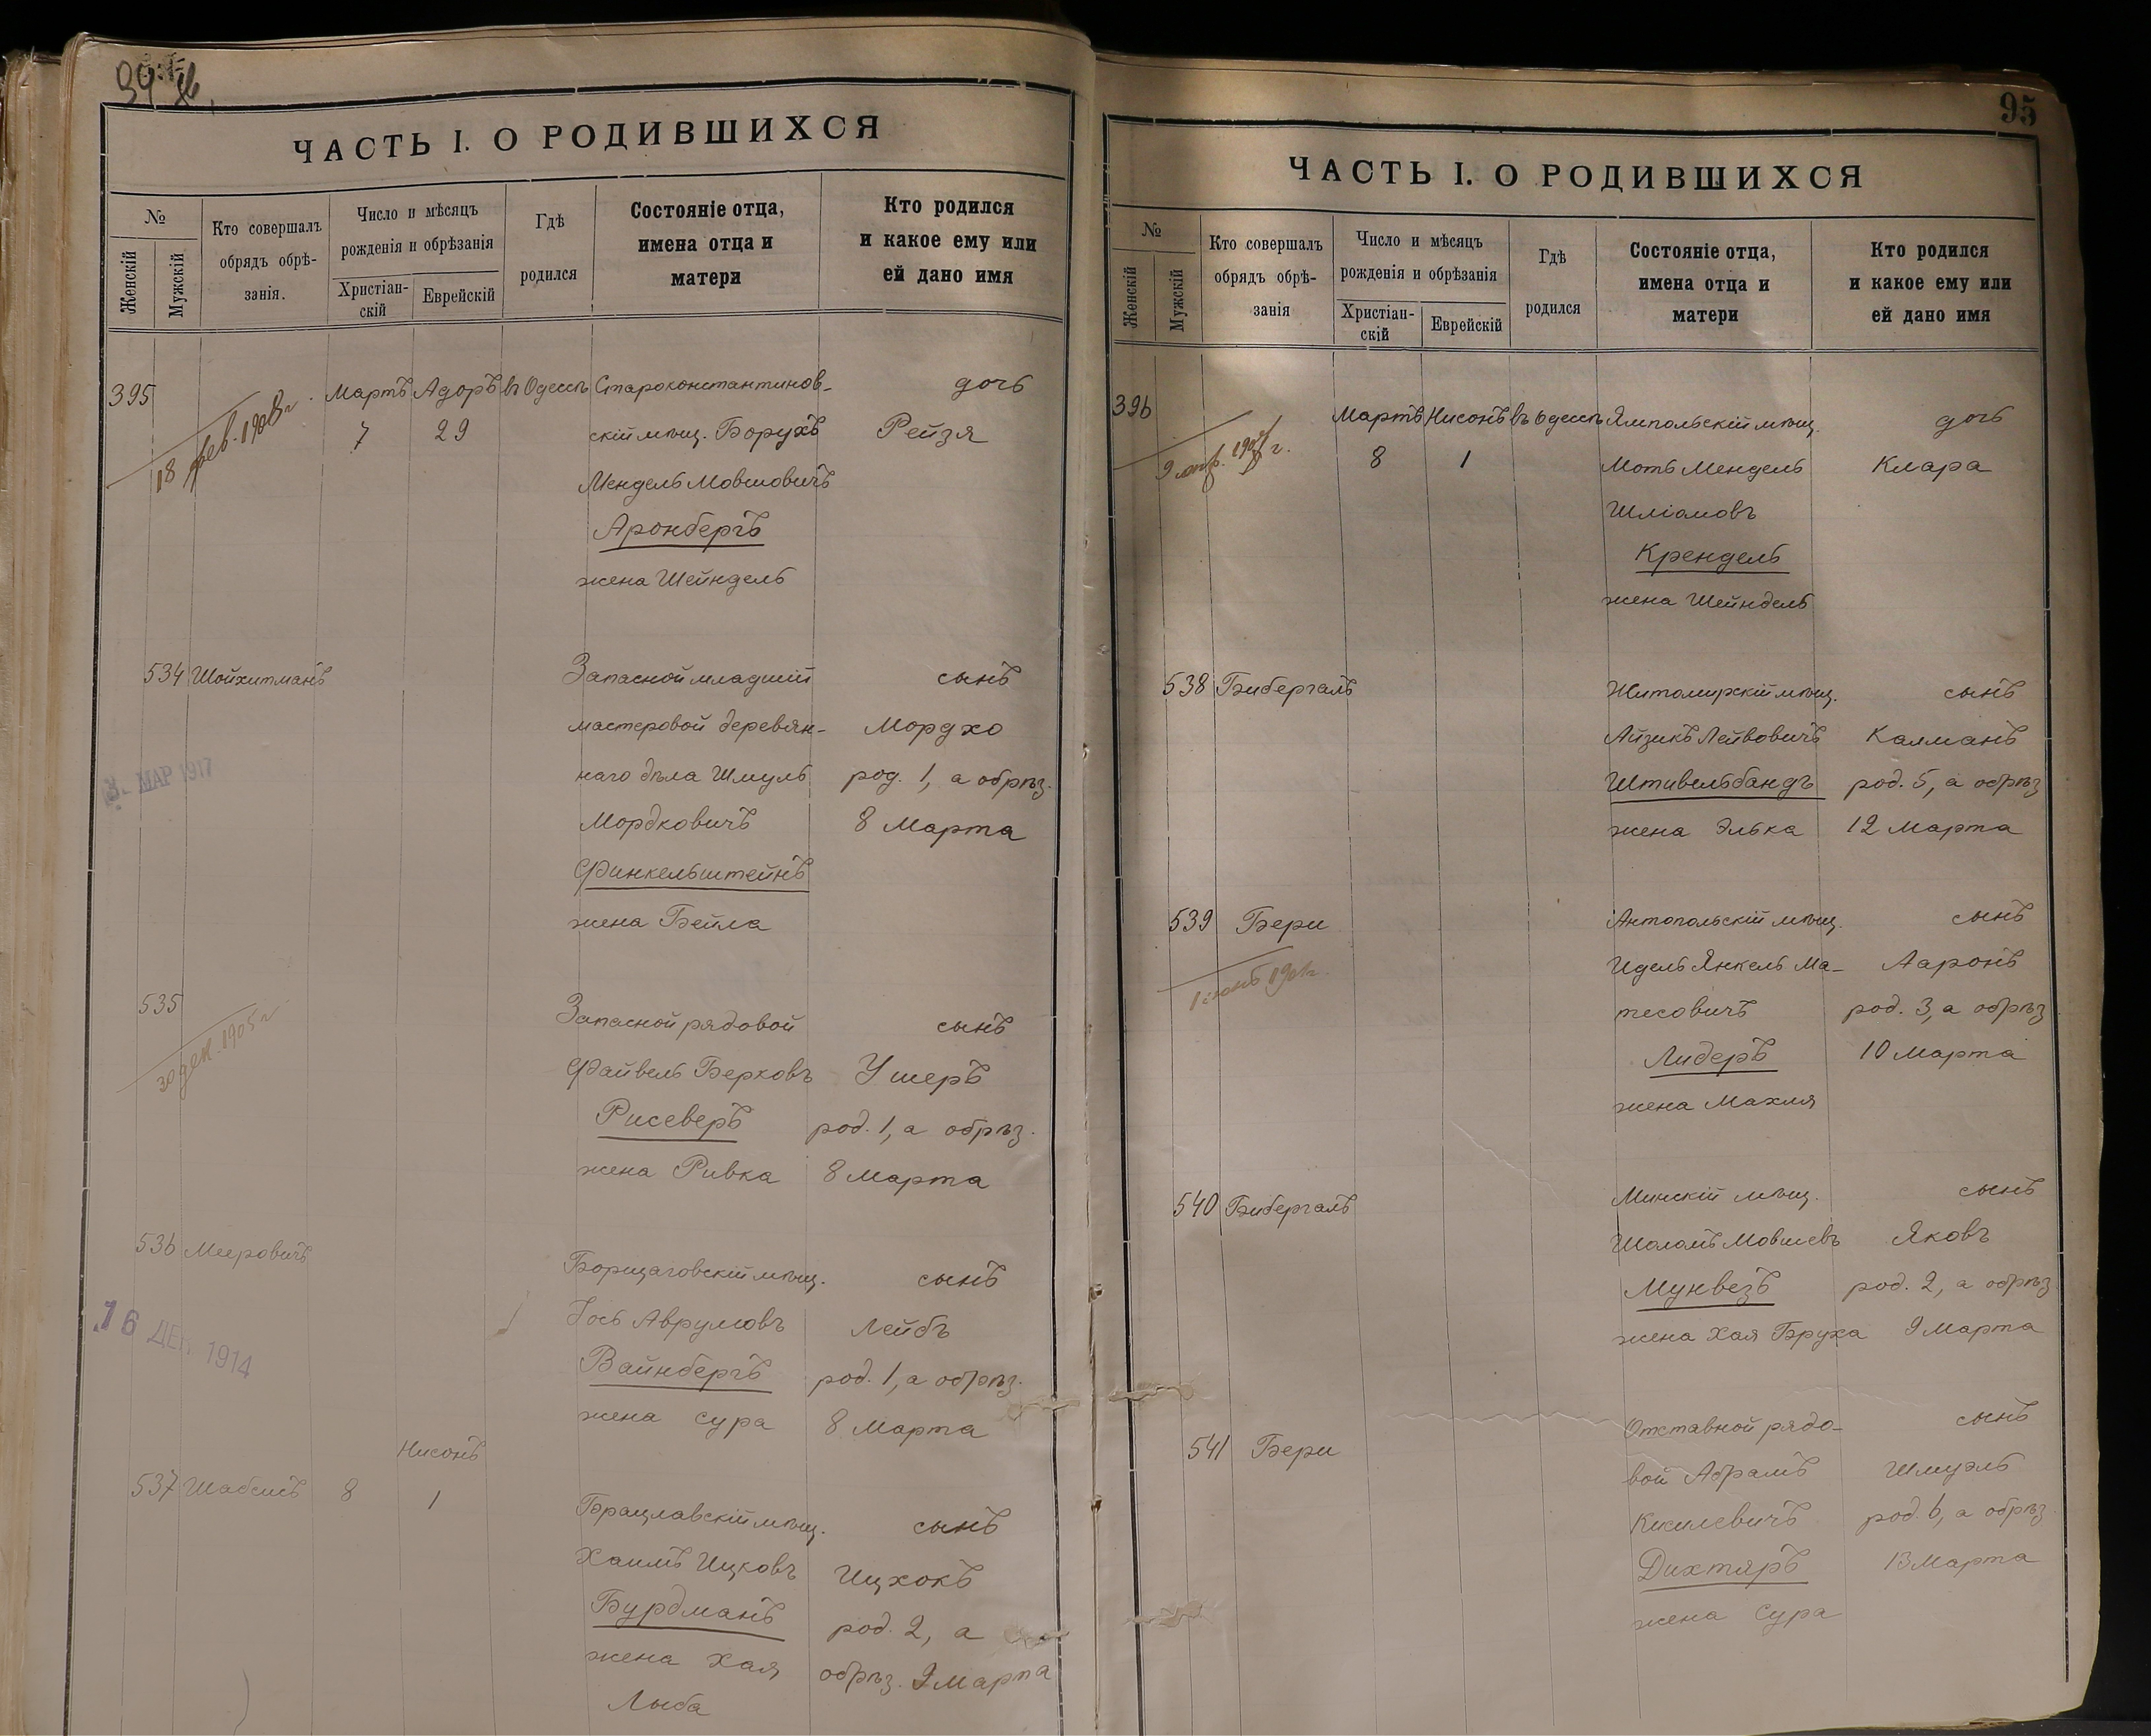 ЧАСТЬ I. О РОДИВШИХСЯ
№
Женскій
Мужскій
Кто совершалъ
обрядъ обрѣ-
занія.
Число и мѣсяцъ
рожденія и обрѣзанія
Христіан-
скій
Еврейскій
Гдѣ
родился
Состояніе отца,
имена отца и
матери
Кто родился
и какое ему или
ей дано имя
395 Мартъ Адоръ въ Одессѣ Староконстантинов- дочь
18 фев. 1908 г. 7 29 скій мѣщ. Борухъ Рейзя
Мендель Мовшовичъ
Аронбергъ
жена Шейндель
534 Шойхитманъ Запасной младшій сынъ
мастеровой деревян- Мордхо
МАР 1917 наго дѣла Шмуль род. 1, а обрѣз.
Мордковичъ 8 Марта
Финкельштейнъ
жена Бейла
535 Запасной рядовой сынъ
30 дек. 1905 г Файвель Берковъ Ушеръ
Рисеверъ род. 1, а обрѣз.
жена Ривка 8 Марта
536 Мееровичъ Борщаговскій мѣщ. сынъ
16 ДЕК 1914 Іось Аврумовъ Лейбъ
Вайнбергъ род. 1, а обрѣз.
жена Сура 8 Марта
Нисонъ
537 Шабсисъ 8 1 Брацлавскій мѣщ. сынъ
Хаимъ Ицковъ Ицхокъ
Бурдманъ род. 2, а
жена Хая обрѣз. 9 Марта
Лыба
95
ЧАСТЬ I. О РОДИВШИХСЯ
№
Женскій
Мужскій
Кто совершалъ
обрядъ обрѣ-
занія
Число и мѣсяцъ
рожденія и обрѣзанія
Христіан-
скій
Еврейскій
Гдѣ
родился
Состояніе отца,
имена отца и
матери
Кто родился
и какое ему или
ей дано имя
396 Мартъ Нисонъ въ Одессѣ Ямпольскій мѣщ. дочь
8 1 Моть Мендель Клара
Шліомовъ
Крендель
жена Шейндель
538 Бибергалъ Житомирскій мѣщ. сынъ
Айзикъ Лейвовичъ Калманъ
Штивельбандъ род. 5, а обрѣз
жена Элька 12 Марта
539 Бери Антопольскій мѣщ. сынъ
Идель Янкель Ма- Ааронъ
тесовичъ род. 3, а обрѣз
Лидеръ 10 Марта
жена Махля
540 Бибергалъ Минскій мѣщ. сынъ
Шоломъ Мовшевъ Яковъ
Мунвезъ род. 2, а обрѣз
жена Хая Бруха 9 Марта
541 Бери Отставной рядо- сынъ
вой Абрамъ Шмуэль
Кисилевичъ род. 6, а обрѣз.
Дихтяръ 13 Марта
жена Сура